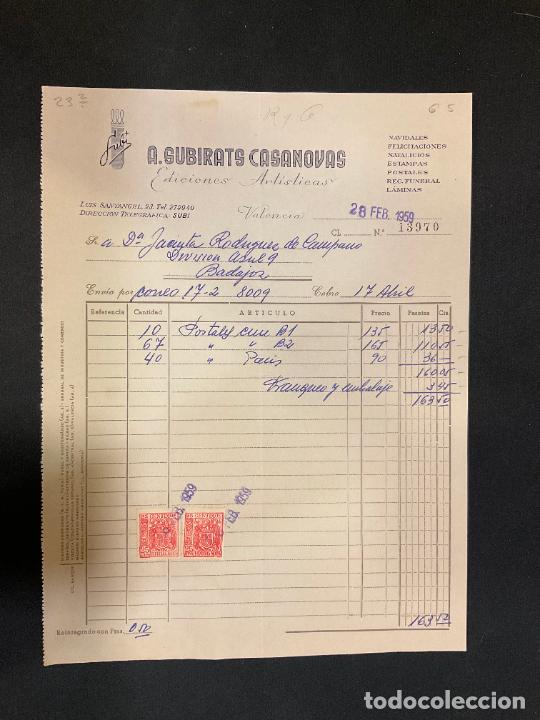 23 2/2
R y G
65
Subi
A. SUBIRATS CASANOVAS
Ediciones Artísticas
NAVIDALES
FELICITACIONES
NATALICIOS
ESTAMPAS
POSTALES
REC. FUNERAL
LÁMINAS
LUIS SANTANGEL, 23. Tel. 279940
DIRECCION TELEGRAFICA: SUBI
Valencia 28 FEB. 1959
CL. N.º 13970
Sr. a Dª Jacinta Rodriguez de Campano
Division Azul 9
Badajoz
Envío por correo 17-2 8009 Cobro 17 Abril
Referencia Cantidad ARTICULO Precio Pesetas Cts.
10 Postales cine B1 135 13 50
67 " " B2 165 110 55
40 " Pais 90 36 —
160 05
Franqueo y embalaje 3 45
163 50
FEB. 1959
FEB. 1959
Reintegrado con Ptas. 0.50
163 50
todocoleccion.net